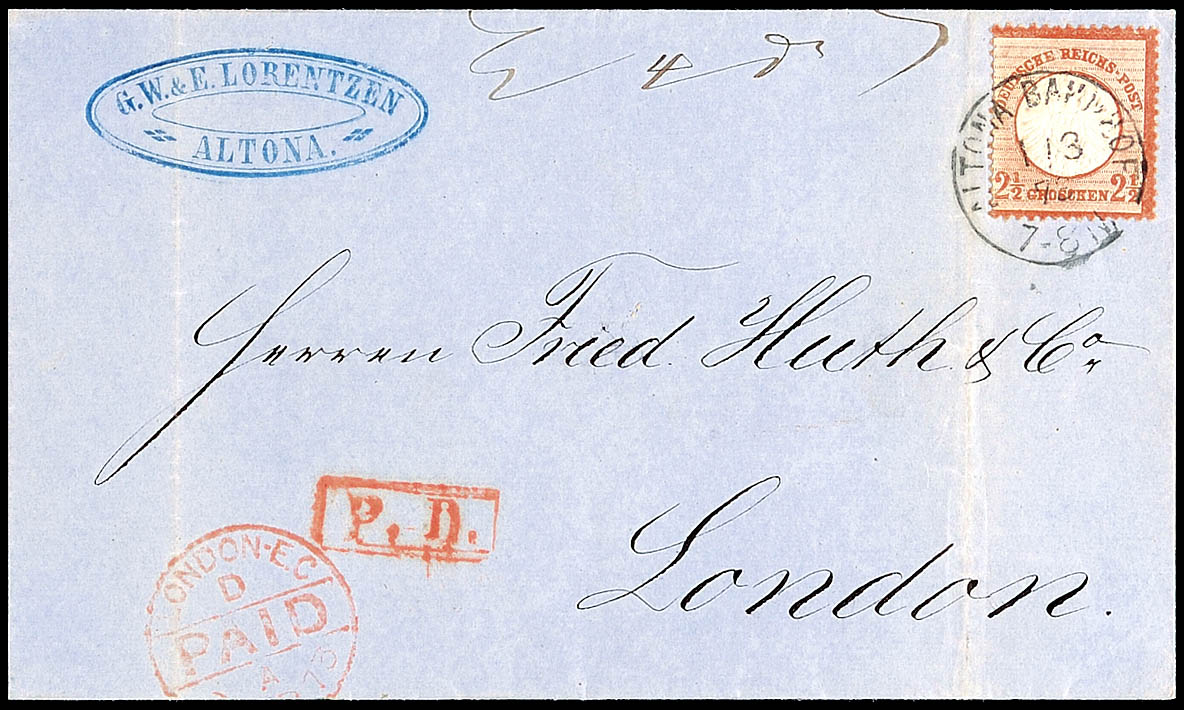 G. W. & E. LORENTZEN
ALTONA.
DEUTSCHE REICHS-POST
2½ GROSCHEN 2½
ALTONA BAHNHOF
1 13
7-8
Herren Fried. Huth & Co.
London.
P. D.
LONDON-E.C
D
PAID
A
73